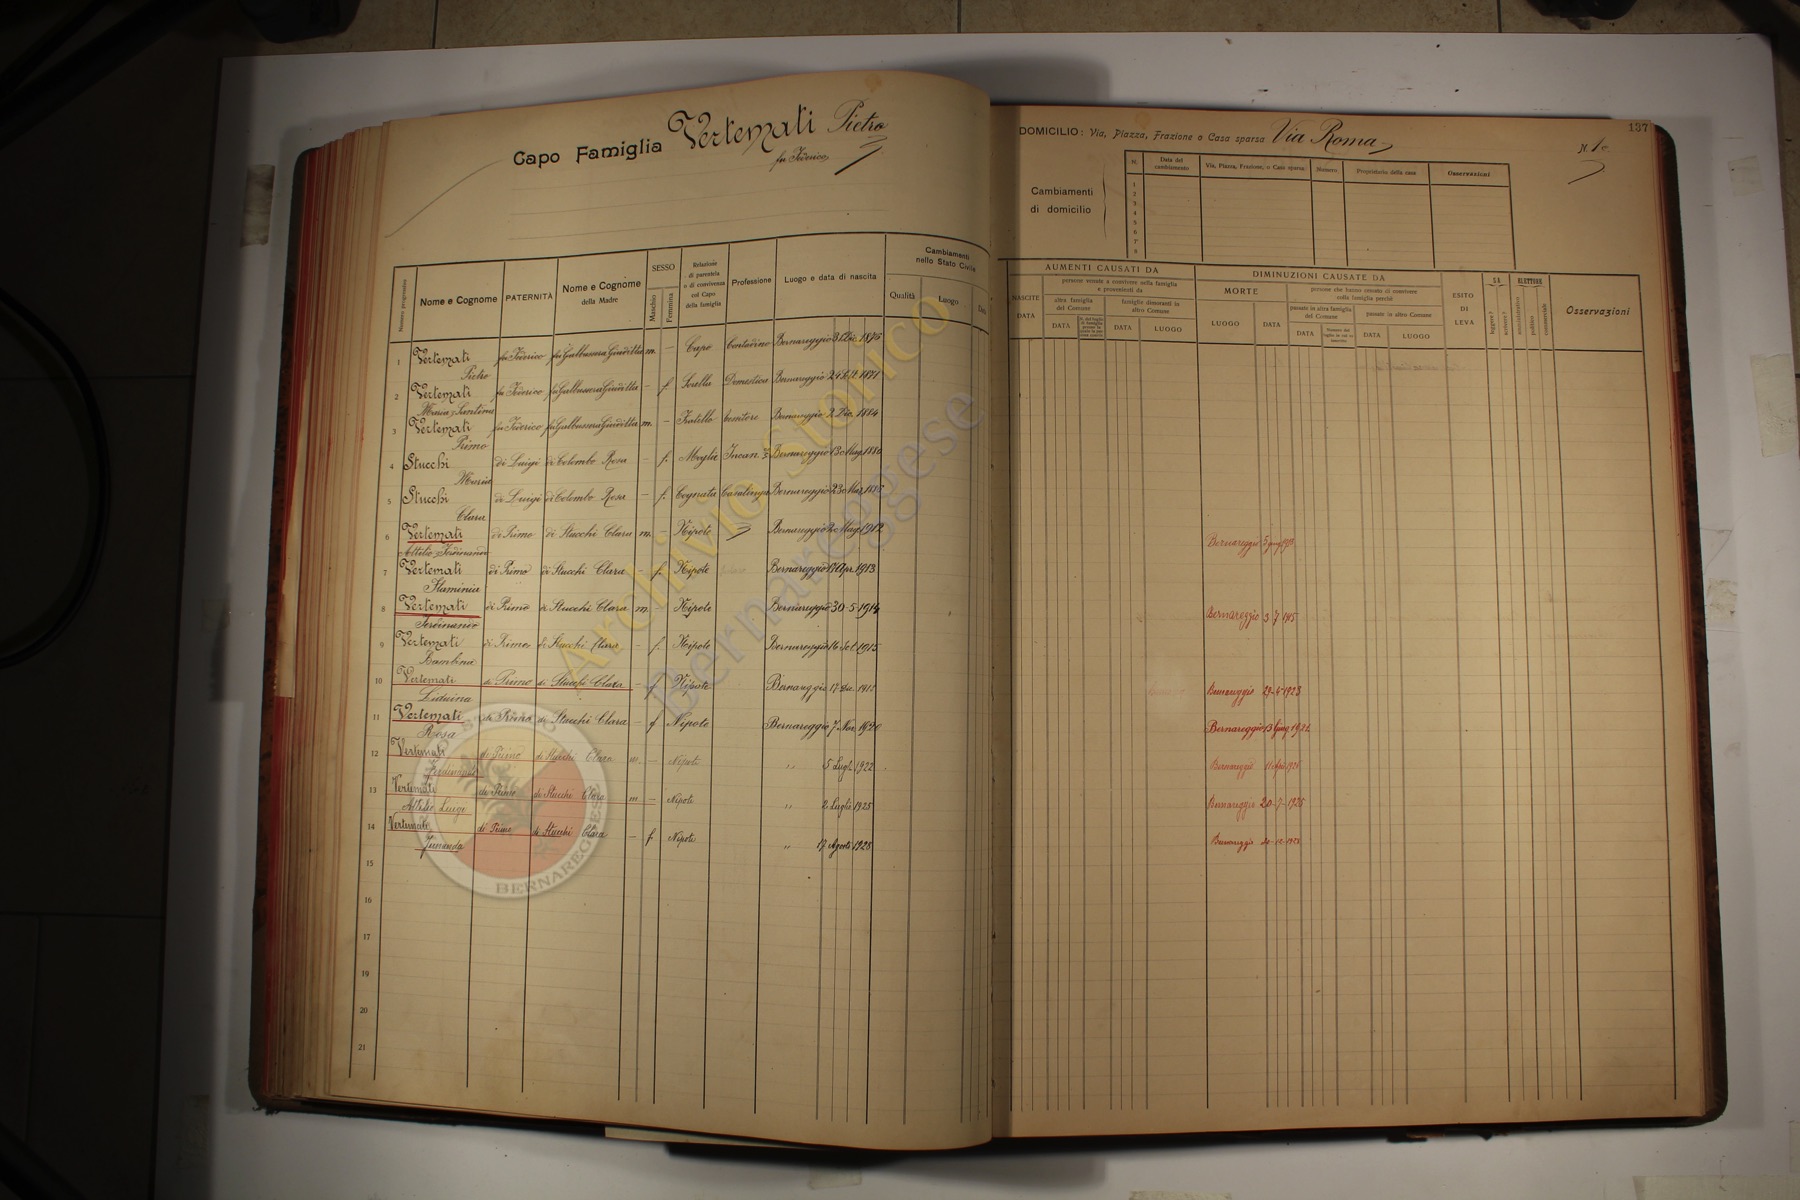 Capo Famiglia Vertemati Pietro
fu Federico
137
DOMICILIO: Via, Piazza, Frazione o Casa sparsa Via Roma
N.
Cambiamenti di domicilio
N. Data del cambiamento Via, Piazza, Frazione, o Casa sparsa Numero Proprietario della casa Osservazioni
1
2
3
4
5
6
7
8
Numero progressivo Nome e Cognome PATERNITÀ Nome e Cognome della Madre SESSO Maschio Femmina Relazione di parentela o di convivenza col Capo della famiglia Professione Luogo e data di nascita Cambiamenti nello Stato Civile Qualità Luogo
NASCITE DATA AUMENTI CAUSATI DA persone entrate a convivere nella famiglia e provenienti da altra famiglia del Comune DATA famiglie dimoranti in altro Comune DATA LUOGO
DIMINUZIONI CAUSATE DA MORTE LUOGO DATA persone che hanno cessato di convivere colla famiglia perchè passate in altra famiglia del Comune DATA passate in altro Comune DATA LUOGO
ESITO DI LEVA SA leggere? scrivere? ELETTORE amministrativo politico commerciale Osservazioni
1 Vertemati Pietro fu Federico fu Galbussera Giuditta m. – Capo Contadino Bernareggio 31 Dic. 1875
2 Vertemati Maria Santina fu Federico fu Galbussera Giuditta – f Sorella Domestica Bernareggio 24 1871
3 Vertemati Primo fu Federico fu Galbussera Giuditta m. – Fratello Bernareggio 2 Dic. 1884
4 Stucchi Maria di Luigi di Colombo Rosa – f. Moglie Incan. Bernareggio 13 Mag. 1880
5 Stucchi Clara di Luigi di Colombo Rosa – f. Cognata Casalinga Bernareggio 23 Mar. 1885
6 Vertemati Attilio Ferdinando di Primo di Stucchi Clara m. – Nipote Bernareggio Mag. 1912 Bernareggio 5
7 Vertemati Flaminia di Primo di Stucchi Clara – f. Nipote Bernareggio 17 Apr. 1913
8 Vertemati Ferdinando di Primo di Stucchi Clara m. – Nipote Bernareggio 30-5-1914 Bernareggio 3 7 1915
9 Vertemati Bambina di Primo di Stucchi Clara – f. Nipote Bernareggio 16 1915
10 Vertemati Liduina di Primo di Stucchi Clara – f Nipote Bernareggio 17 Dic. Bernareggio 29-4-1923
11 Vertemati Rosa di Primo di Stucchi Clara – f Nipote Bernareggio 7 Nov. 1920 Bernareggio 13 Giug
12 Vertemati Ferdinando di Primo di Stucchi Clara m – Nipote " 5 Lugl. 1922 Bernareggio 11
13 Vertemati Attilio Luigi di Primo di Stucchi Clara m – Nipote " 2 Luglio 1925 Bernareggio 20-7-1925
14 Vertemati Fernanda di Primo di Stucchi Clara – f. Nipote " 17 Agosto 1928 Bernareggio
15
16
17
18
19
20
21
Archivio Storico
Bernareggese
BERNAREGGESE